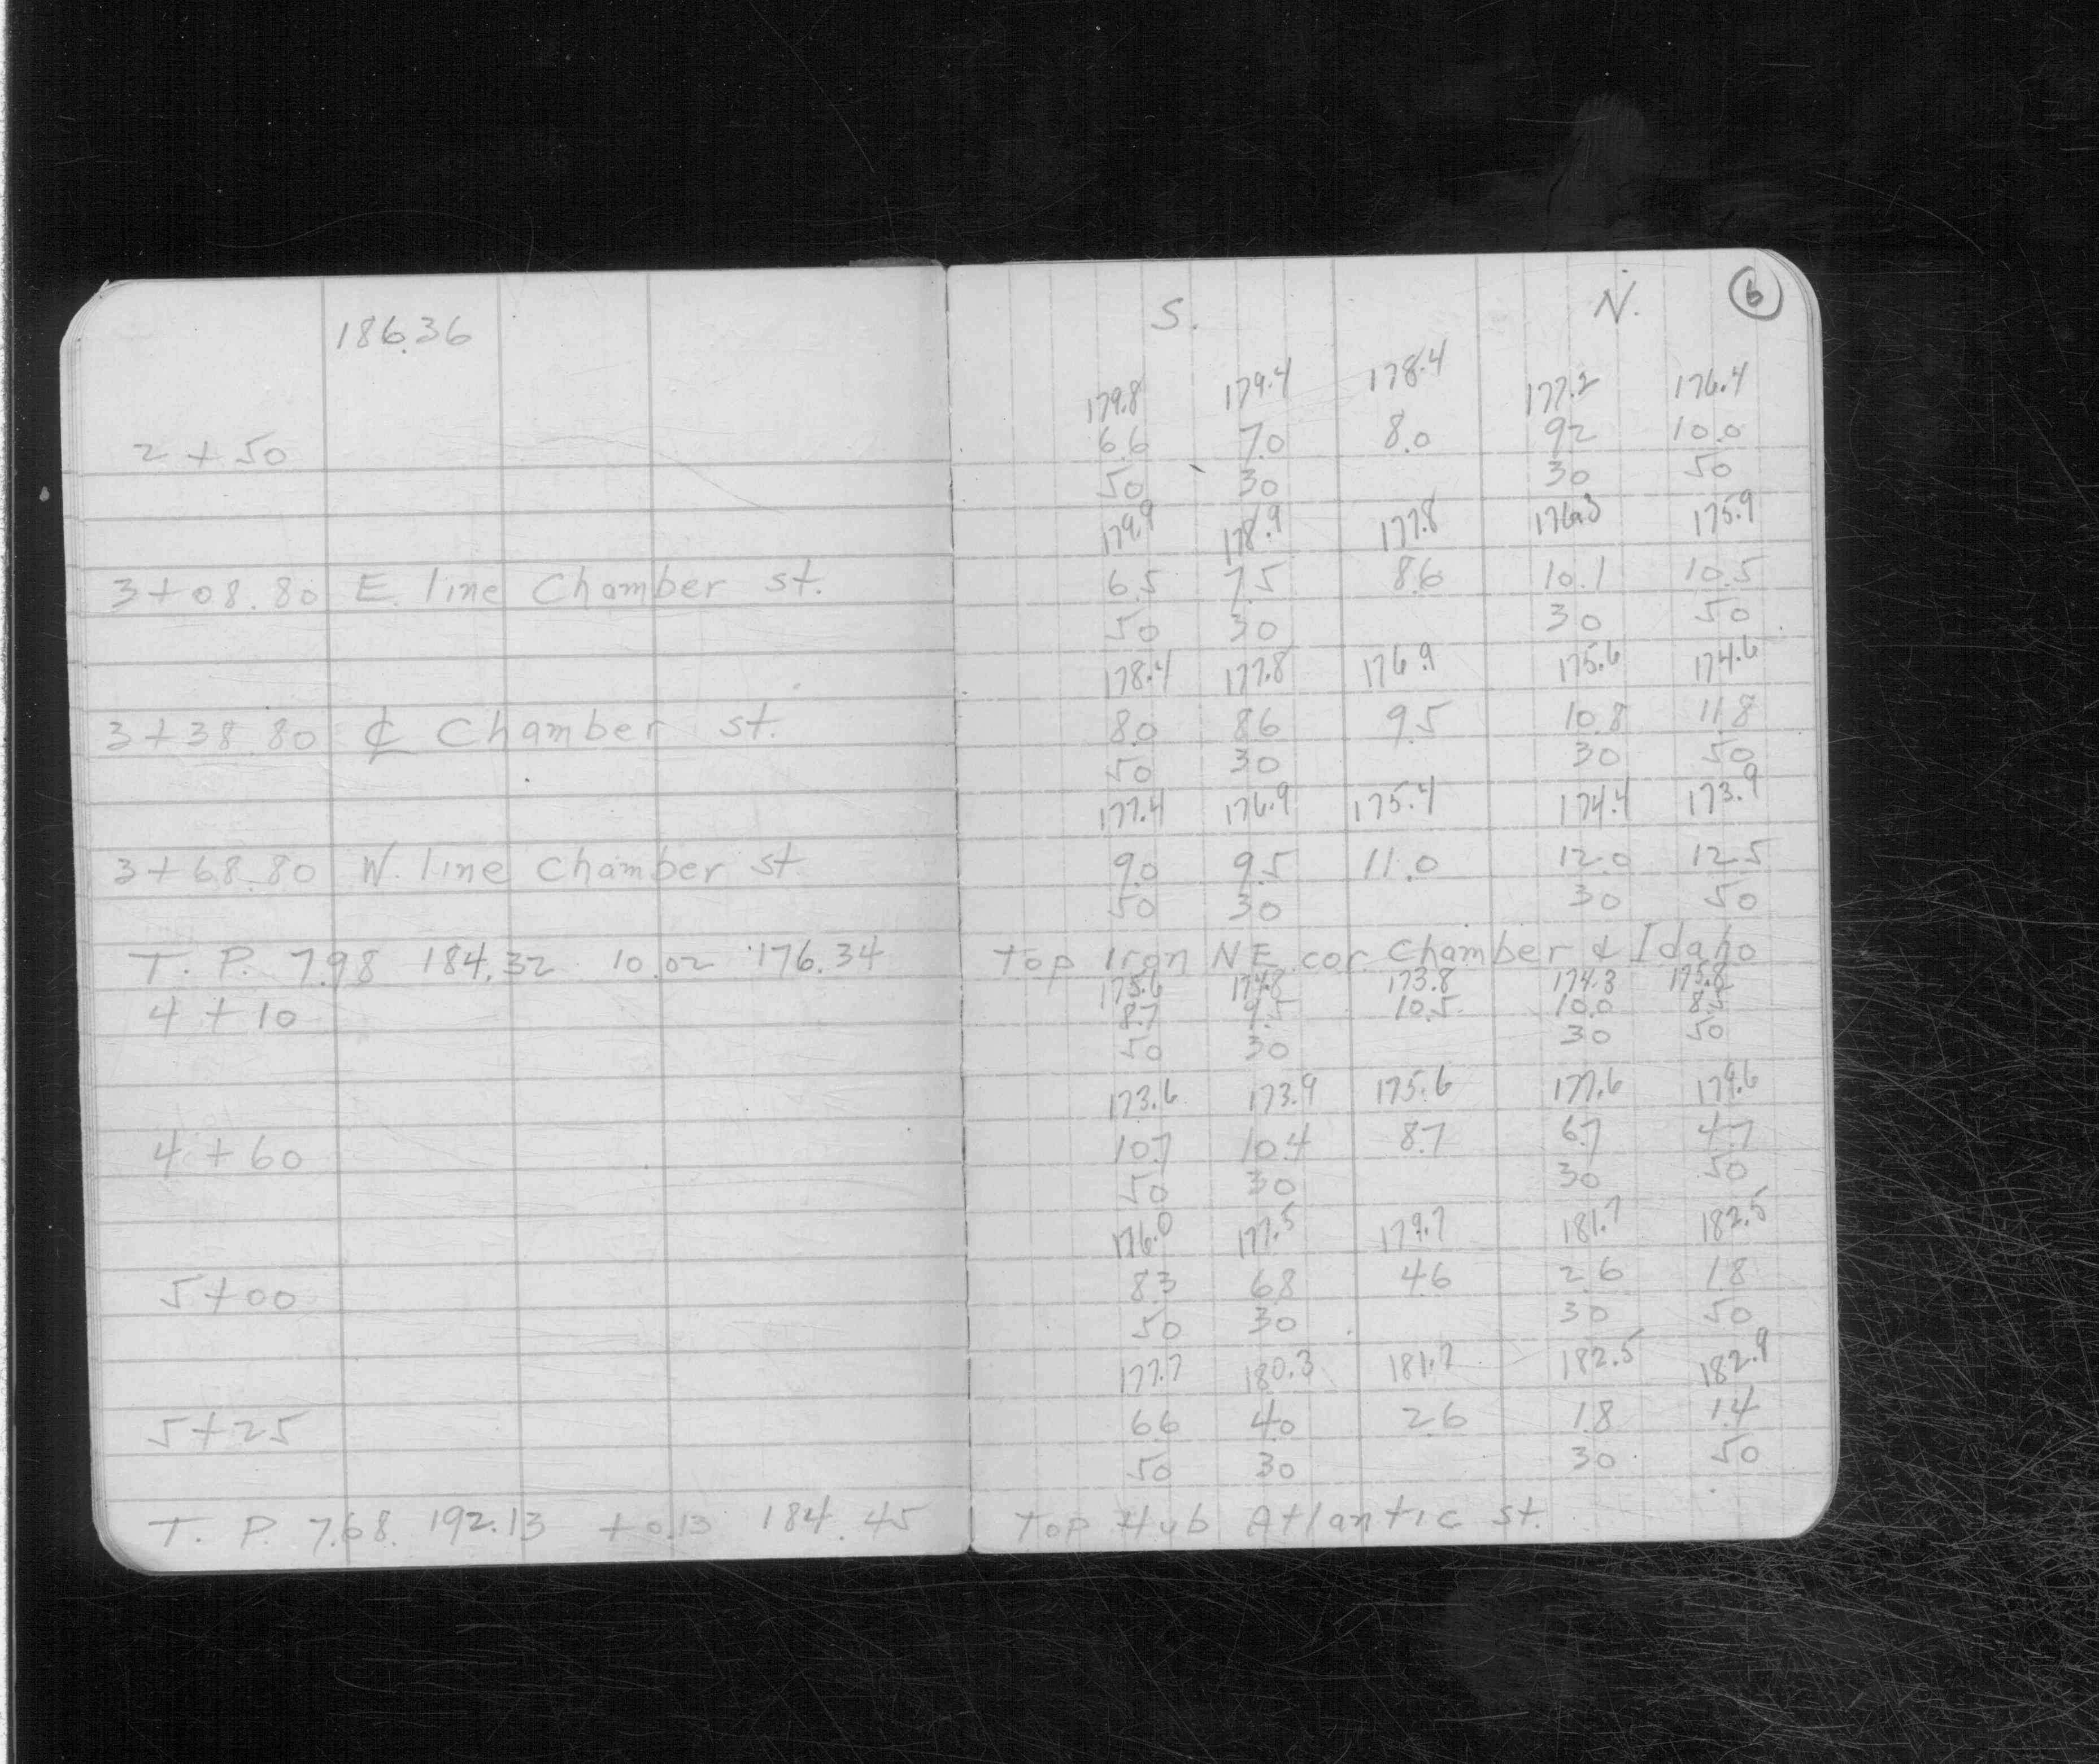 S. N. 6
186.36
179.8 179.4 178.4 177.2 176.4
2 + 50 6.6 7.0 8.0 9.2 10.0
50 30 30 50
179.9 178.9 177.8 176.3 175.9
3+08.80 E. line Chamber st. 6.5 7.5 8.6 10.1 10.5
50 30 30 50
178.4 177.8 176.9 175.6 174.6
3+38.80 ℄ Chamber st. 8.0 8.6 9.5 10.8 11.8
50 30 30 50
177.4 176.9 175.4 174.4 173.9
3+68.80 W. line Chamber st 9.0 9.5 11.0 12.0 12.5
50 30 30 50
T. P. 7.98 184.32 10.02 176.34 Top Iron NE. cor. Chamber & Idaho
175.6 174.8 173.8 174.3 175.8
4 + 10 8.7 9.5 10.5 10.0 8.5
50 30 30 50
173.6 173.9 175.6 177.6 179.6
4 + 60 10.7 10.4 8.7 6.7 4.7
50 30 30 50
176.0 177.5 179.7 181.7 182.5
5+00 8.3 6.8 4.6 2.6 1.8
50 30 30 50
177.7 180.3 181.7 182.5 182.9
5+25 6.6 4.0 2.6 1.8 1.4
50 30 30 50
T. P. 7.68 192.13 +0.13 184.45 Top Hub Atlantic st.